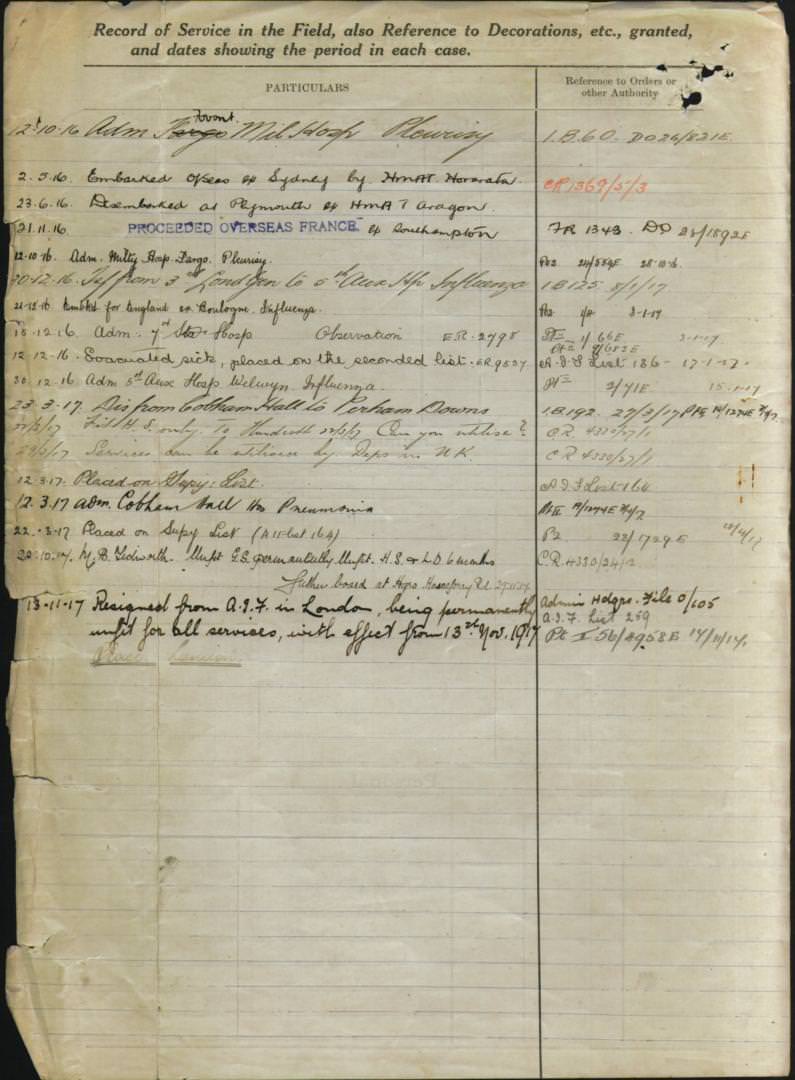 Record of Service in the Field, also Reference to Decorations, etc., granted,
and dates showing the period in each case.
PARTICULARS
Reference to Orders or
other Authority
12-10-16 Adm Fargo Mil Hosp Pleurisy 1.B.60. DO26/821E
2.5.16. Embarked O'seas ex Sydney by HMAT CR1369/5/3
23.6.16. Disembarked at Plymouth ex HMAT Aragon.
21.11.16 PROCEEDED OVERSEAS FRANCE ex Southampton FR 1343. DO 28/1892E
12.10.16. Adm. Milty Hosp. Fargo. Pleurisy. Pt2
30-12-16 Tsf from 3rd Lond Gen to 5th Aux Hp Influenza 1.B125 5/1/17
21-12-16 Embkd for England ex Boulogne. Influenza. Pt2 3-1-17
12.16. Adm. 7th Hosp Observation E.R. 2798 1/66E
12.12.16. Evacuated sick, placed on the seconded list. ER 9537 A.I.F List 136 - 17-1-17.
30.12.16 Adm 5th Aux Hosp Welwyn. Influenza. 2/71E 15.1.17
23.3.17. Dis from Cobham Hall to Perham Downs 1.B192. 27/3/17
Fit H.S. only. To Can you utilise? C.R 4330/27/1
Services can be utilised by Depts in U.K. C.R 4330/27/1
12.3.17. Placed on Supy. List. A.I.F List 164
12.3.17 Adm. Cobham Hall Hos Pneumonia Pt II
22.3.17 Placed on Supy List (A.I.F. List 164) 22/1729E
22.10.17. M.B. Tidworth. Unfit G.S. permanently Unfit. H.S. & L.D 6 months C.R. 4330/24/2
13-11-17 Resigned from A.I.F. in London, being permanently Admin Hdqrs. File 0/105
A.I.F. List 259
unfit for all services, with effect from 13th Nov. 1917 Pt II 56/8958E 14/11/17.